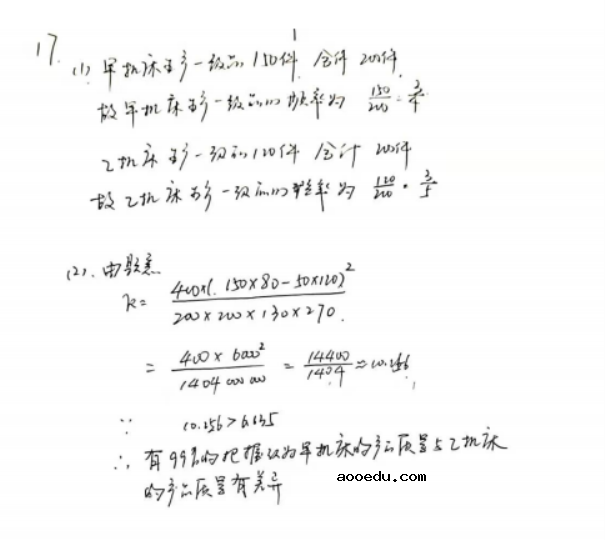 17.
(1) 甲机床生产一级品150件 合计200件
故甲机床生产一级品的频率为 150/200 = 3/4
乙机床生产一级品120件 合计200件
故乙机床生产一级品的频率为 120/200 = 3/5
(2). 由题意
k = 400×(150×80-50×120)² / 200×200×130×270
= 400×6000² / 140400000 = 14400/1404 ≈ 10.256
∵ 10.256>6.635
∴ 有99%的把握认为甲机床的产品质量与乙机床
的产品质量有差异
aooedu.com